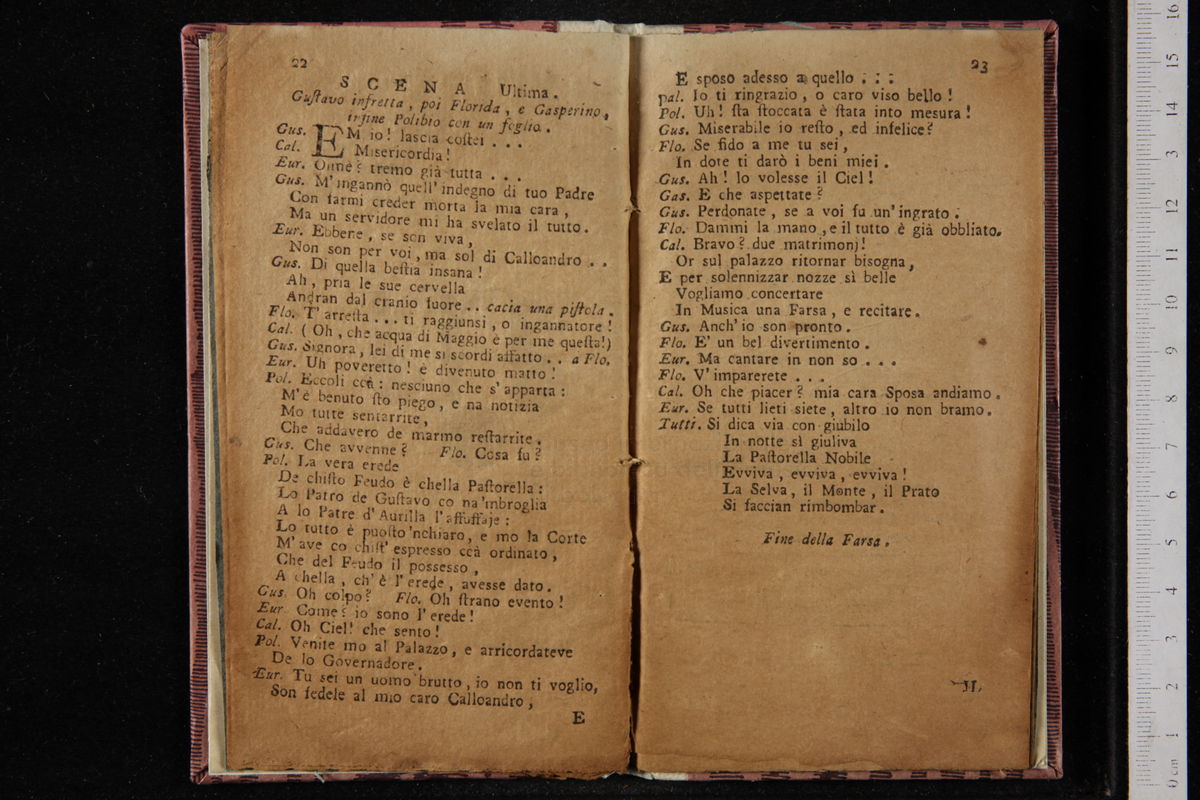 22
SCENA Ultima.
Guſtavo infretta, poi Florida, e Gaſperino,
infine Polibio con un foglio.
Gus. EM io! laſcia coſtei . . .
Cal. Miſericordia!
Eur. Oimè? tremo già tutta . . .
Gus. M'ingannò quell' indegno di tuo Padre
Con farmi creder morta la mia cara,
Ma un ſervidore mi ha ſvelato il tutto.
Eur. Ebbene, ſe son viva,
Non son per voi, ma sol di Calloandro . .
Gus. Di quella beſtia insana!
Ah, pria le sue cervella
Andran dal cranio fuore . . cacia una piſtola.
Flo. T' arreſta . . . ti raggiunsi, o ingannatore!
Cal. ( Oh, che acqua di Maggio è per me queſta!)
Gus. Signora, lei di me si scordi affatto . . a Flo.
Eur. Uh poveretto! è divenuto matto!
Pol. Eccoli ccà: nesciuno che s'apparta:
M'è benuto ſto piego, e na notizia
Mo tutte sentarrite,
Che addavero de marmo reſtarrite.
Gus. Che avvenne? Flo. Cosa fu?
Pol. La vera erede
De chiſto Feudo è chella Paſtorella:
Lo Patro de Guſtavo co na'mbroglia
A lo Patre d'Aurilla l'affuffaje:
Lo tutto è puoſto'nchiaro, e mo la Corte
M'ave co chiſt' espresso ccà ordinato,
Che del Feudo il possesso,
A chella, ch'è l'erede, avesse dato.
Gus. Oh colpo? Flo. Oh ſtrano evento!
Eur Come? io sono l'erede!
Cal. Oh Ciel! che sento!
Pol. Venite mo al Palazzo, e arricordateve
De lo Governadore.
Eur. Tu sei un uomo brutto, io non ti voglio,
Son fedele al mio caro Calloandro,
E
23
E sposo adesso a quello . : :
pal. Io ti ringrazio, o caro viso bello!
Pol. Uh! ſta ſtoccata è ſtata into mesura!
Gus. Miserabile io reſto, ed infelice?
Flo. Se fido a me tu sei,
In dote ti darò i beni miei.
Gus. Ah! lo volesse il Ciel!
Gas. E che aspettate?
Gus. Perdonate, se a voi fu un'ingrato.
Flo. Dammi la mano, e il tutto è già obbliato.
Cal. Bravo? due matrimonj!
Or sul palazzo ritornar bisogna,
E per solennizzar nozze sì belle
Vogliamo concertare
In Musica una Farsa, e recitare.
Gus. Anch'io son pronto.
Flo. E' un bel divertimento.
Eur. Ma cantare in non so . . .
Flo. V' imparerete . . .
Cal. Oh che piacer? mia cara Sposa andiamo.
Eur. Se tutti lieti siete, altro io non bramo.
Tutti. Si dica via con giubilo
In notte sì giuliva
La Paſtorella Nobile
Evviva, evviva, evviva!
La Selva, il Monte, il Prato
Si faccian rimbombar.
Fine della Farsa.
IL
0 cm 1 2 3 4 5 6 7 8 9 10 11 12 13 14 15 16